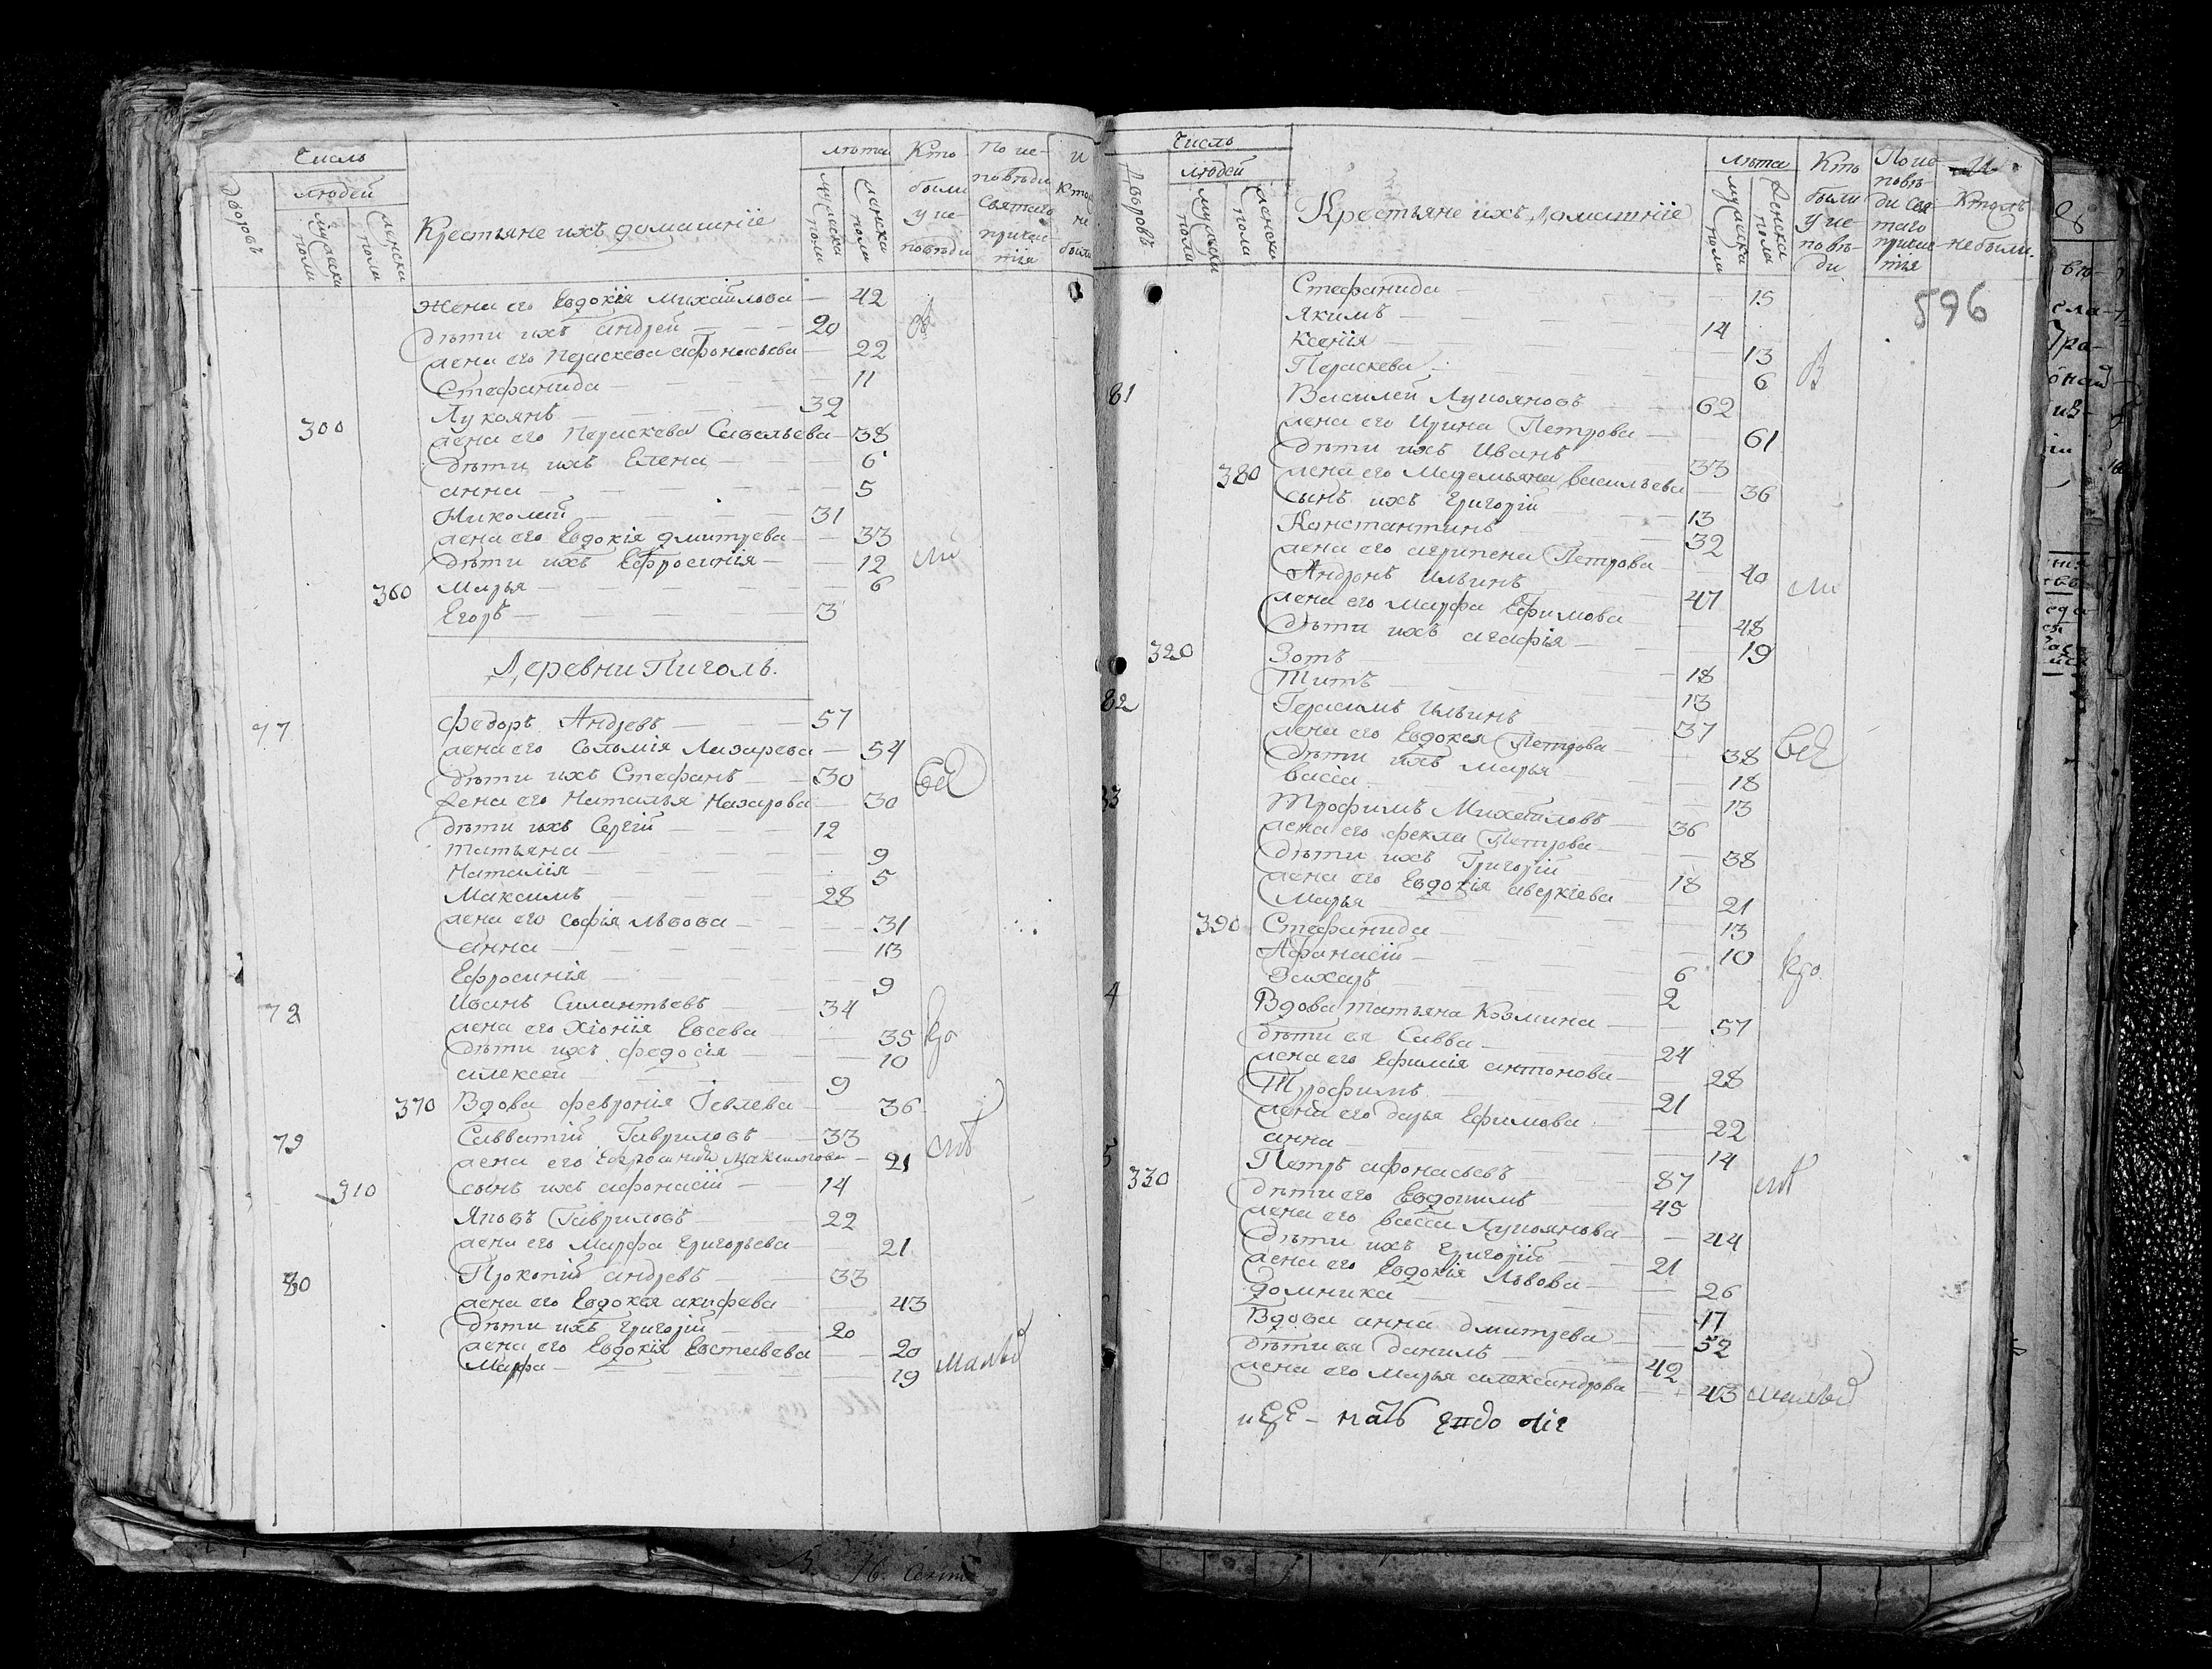 Числъ
людей
Дворовъ
мужеска полu
женска полu
Крестьяне ихъ домашнїе
лѣта
мужеска полu
женска полu
Кто были у исповѣди
По исповѣди святаго причастїя
и кто не были
Жена его Евдокїя Михайлова — 42
дѣти ихъ Андрей — 20
жена его Параскева Афонасьева — 22
Стефанида — 11
300 Лукоянъ — 32
жена его Параскева Савельева — 38
дѣти ихъ Елена — 6
анна — 5
Николай — 31
жена его Евдокїя Дмитрева — 33
дѣти ихъ Ефросинїя — 12
360 Марья — 6
Егоръ — 3
Деревни Пиголь.
77 Федоръ Андревъ — 57
жена его Соломїя Лазарева — 54
дѣти ихъ Стефанъ — 30
жена его Наталья Назарова — 30
дѣти ихъ Сергїй — 12
татьяна — 9
Наталїя — 5
Максимъ — 28
жена его Софья Львова — 31
анна — 13
Ефросинїя — 9
78 Иванъ Силантьевъ — 34
жена его Хїонїя Евсева — 35
дѣти ихъ федосїя — 10
алексей — 9
370 Вдова февронїя Іевлева — 36
79 Савватїй Гавриловъ — 33
жена его Ефросинїя Максимова — 21
310 сынъ ихъ афонасїй — 14
Яковъ Гавриловъ — 22
жена его Марфа Григорьева — 21
80 Прокопїй андревъ — 33
жена его Евдокея акифева — 43
дѣти ихъ Григорїй — 20
жена его Евдокїя Евставева — 20
Марфа — 19
Числъ
людей
Дворовъ
мужеска полu
женска полu
Крестьяне ихъ домашнїе
лѣта
мужеска полu
женска полu
Кто были у исповѣди
По исповѣди святаго причастїя
Кто жъ не были.
596
Стефанида — 15
Якимъ — 14
Ксенїя — 13
Параскева — 6
81 Василей Лукояновъ — 62
жена его Ирина Петрова — 61
дѣти ихъ Иванъ — 33
380 жена его Маремьяна Васильева — 36
сынъ ихъ Григорїй — 13
Константинъ — 32
жена его агрипена Петрова — 40
Андронъ Ильинъ — 47
жена его Марфа Ефимова — 48
дѣти ихъ агафїя — 19
320 Зотъ — 18
Титъ — 13
82 Герасимъ Ильинъ — 37
жена его Евдокея Петрова — 38
дѣти ихъ Марья — 18
васса — 13
83 Трофимъ Михайловъ — 36
жена его фекла Петрова — 38
дѣти ихъ Григорїй — 18
жена его Евдокїя аверкїева — 21
Марья — 13
390 Стефанида — 10
Афанасїй — 6
Захаръ — 2
4 Вдова татьяна Козмина — 57
дѣти ея Савва — 24
жена его Ефимїя антонова — 28
Трофимъ — 21
жена его дарья Ефимова — 22
анна — 14
5 330 Петръ афонасьевъ — 87
дѣти его Евдокимъ — 45
жена его васса Лукоянова — 44
дѣти ихъ Григорїй — 21
жена его Евдокїя Львова — 26
домника — 17
Вдова анна дмитрева — 52
дѣти ея данилъ — 42
жена его Марья александрова — 43